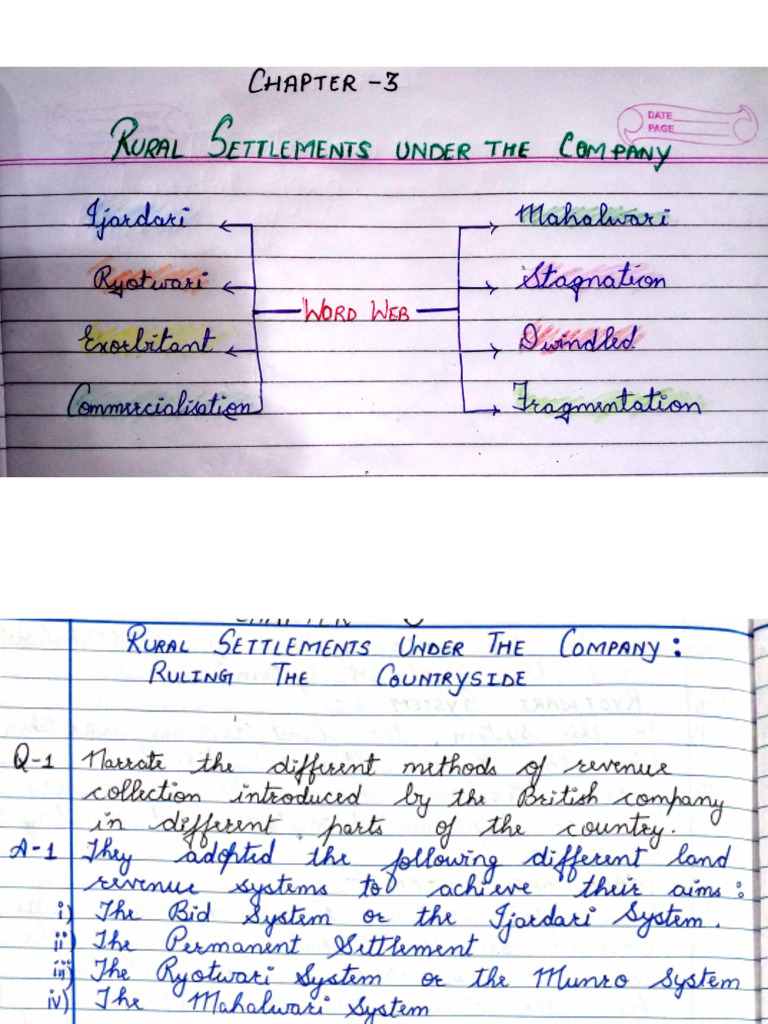 CHAPTER -3
DATE
PAGE
RURAL SETTLEMENTS UNDER THE COMPANY
Ijardari
Mahalwari
Ryotwari
Stagnation
WORD WEB
Exorbitant
Dwindled
Commercialisation
Fragmentation
RURAL SETTLEMENTS UNDER THE COMPANY:
RULING THE COUNTRYSIDE
Q-1 Narrate the different methods of revenue
collection introduced by the British company
in different parts of the country.
A-1 They adopted the following different land
revenue systems to achieve their aims:
i) The Bid System or the Ijardari System.
ii) The Permanent Settlement
iii) The Ryotwari System or the Munro System
iv) The Mahalwari System